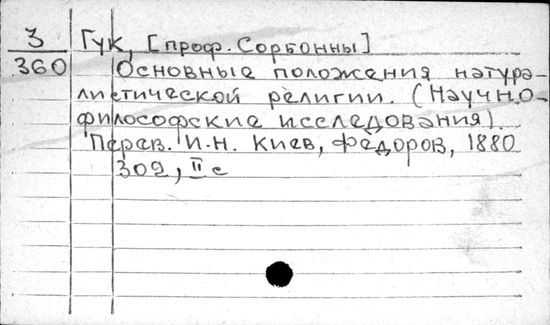 З Гук, [проф. Сорбонны]
360 Основные положения натура-
листической религии. (Научно-
философские исследования).
Перев. И.Н. Киев, Федоров, 1880
302, II с